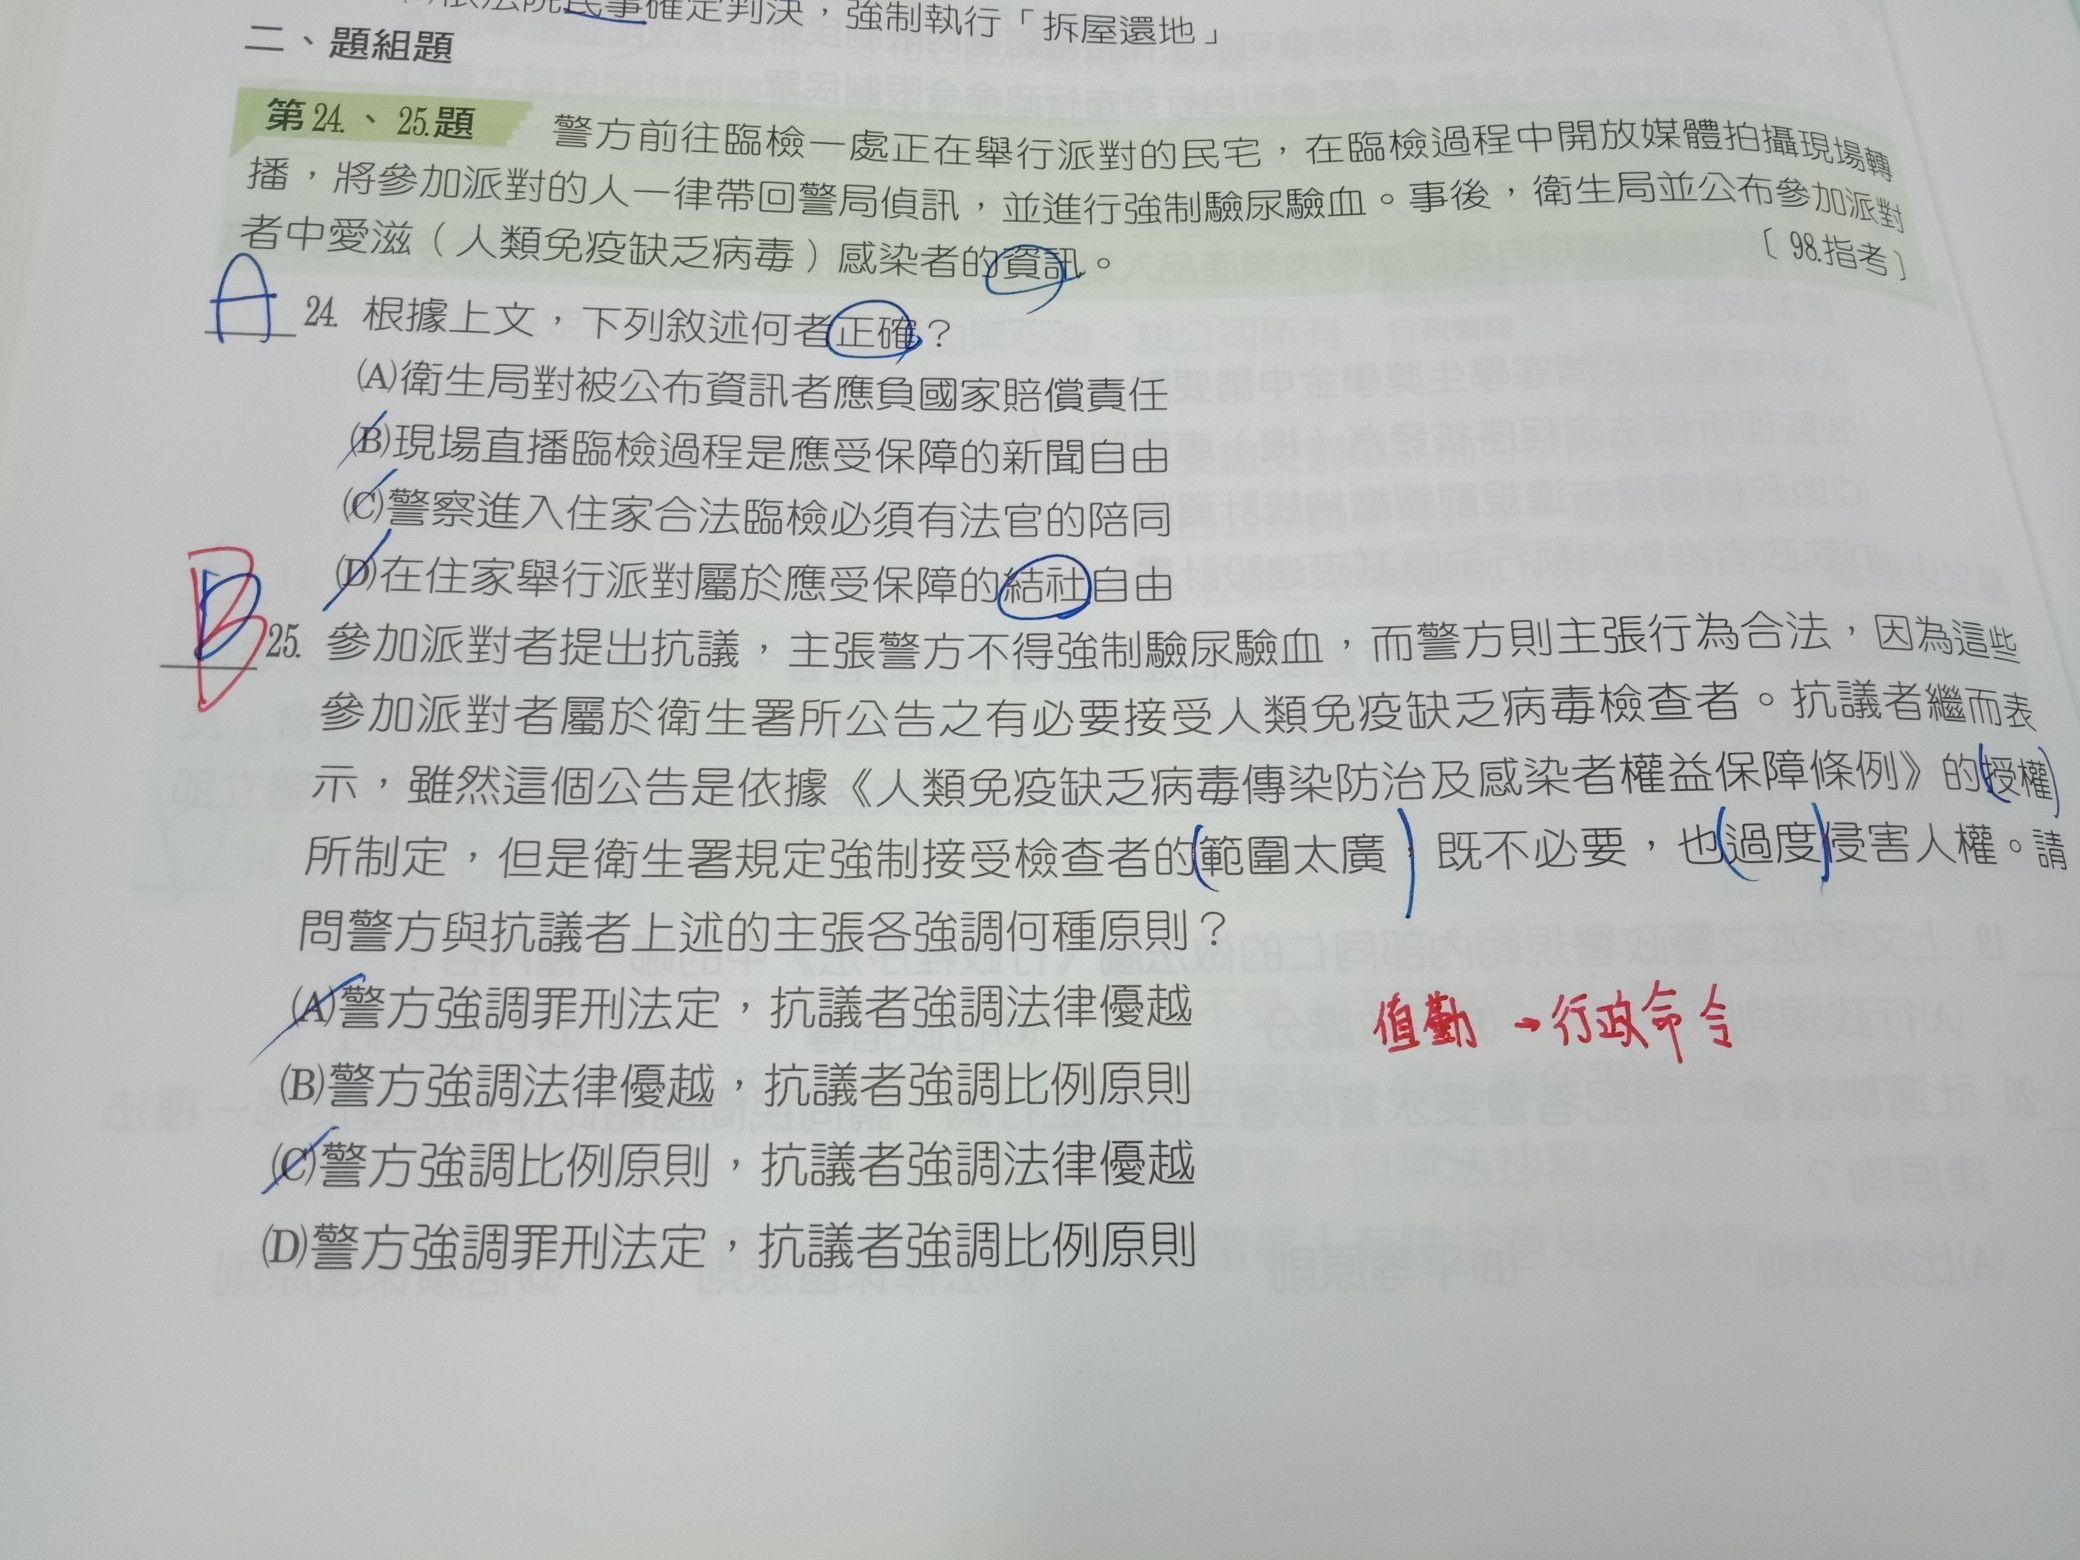 民事確定判決，強制執行「拆屋還地」
二、題組題
第24.、25.題 警方前往臨檢一處正在舉行派對的民宅，在臨檢過程中開放媒體拍攝現場轉
播，將參加派對的人一律帶回警局偵訊，並進行強制驗尿驗血。事後，衛生局並公布參加派對
者中愛滋（人類免疫缺乏病毒）感染者的資訊。〔98.指考〕
A 24. 根據上文，下列敘述何者正確？
(A)衛生局對被公布資訊者應負國家賠償責任
(B)現場直播臨檢過程是應受保障的新聞自由
(C)警察進入住家合法臨檢必須有法官的陪同
(D)在住家舉行派對屬於應受保障的結社自由
B 25. 參加派對者提出抗議，主張警方不得強制驗尿驗血，而警方則主張行為合法，因為這些
參加派對者屬於衛生署所公告之有必要接受人類免疫缺乏病毒檢查者。抗議者繼而表
示，雖然這個公告是依據《人類免疫缺乏病毒傳染防治及感染者權益保障條例》的授權
所制定，但是衛生署規定強制接受檢查者的範圍太廣，既不必要，也過度侵害人權。請
問警方與抗議者上述的主張各強調何種原則？
(A)警方強調罪刑法定，抗議者強調法律優越
值勤→行政命令
(B)警方強調法律優越，抗議者強調比例原則
(C)警方強調比例原則，抗議者強調法律優越
(D)警方強調罪刑法定，抗議者強調比例原則